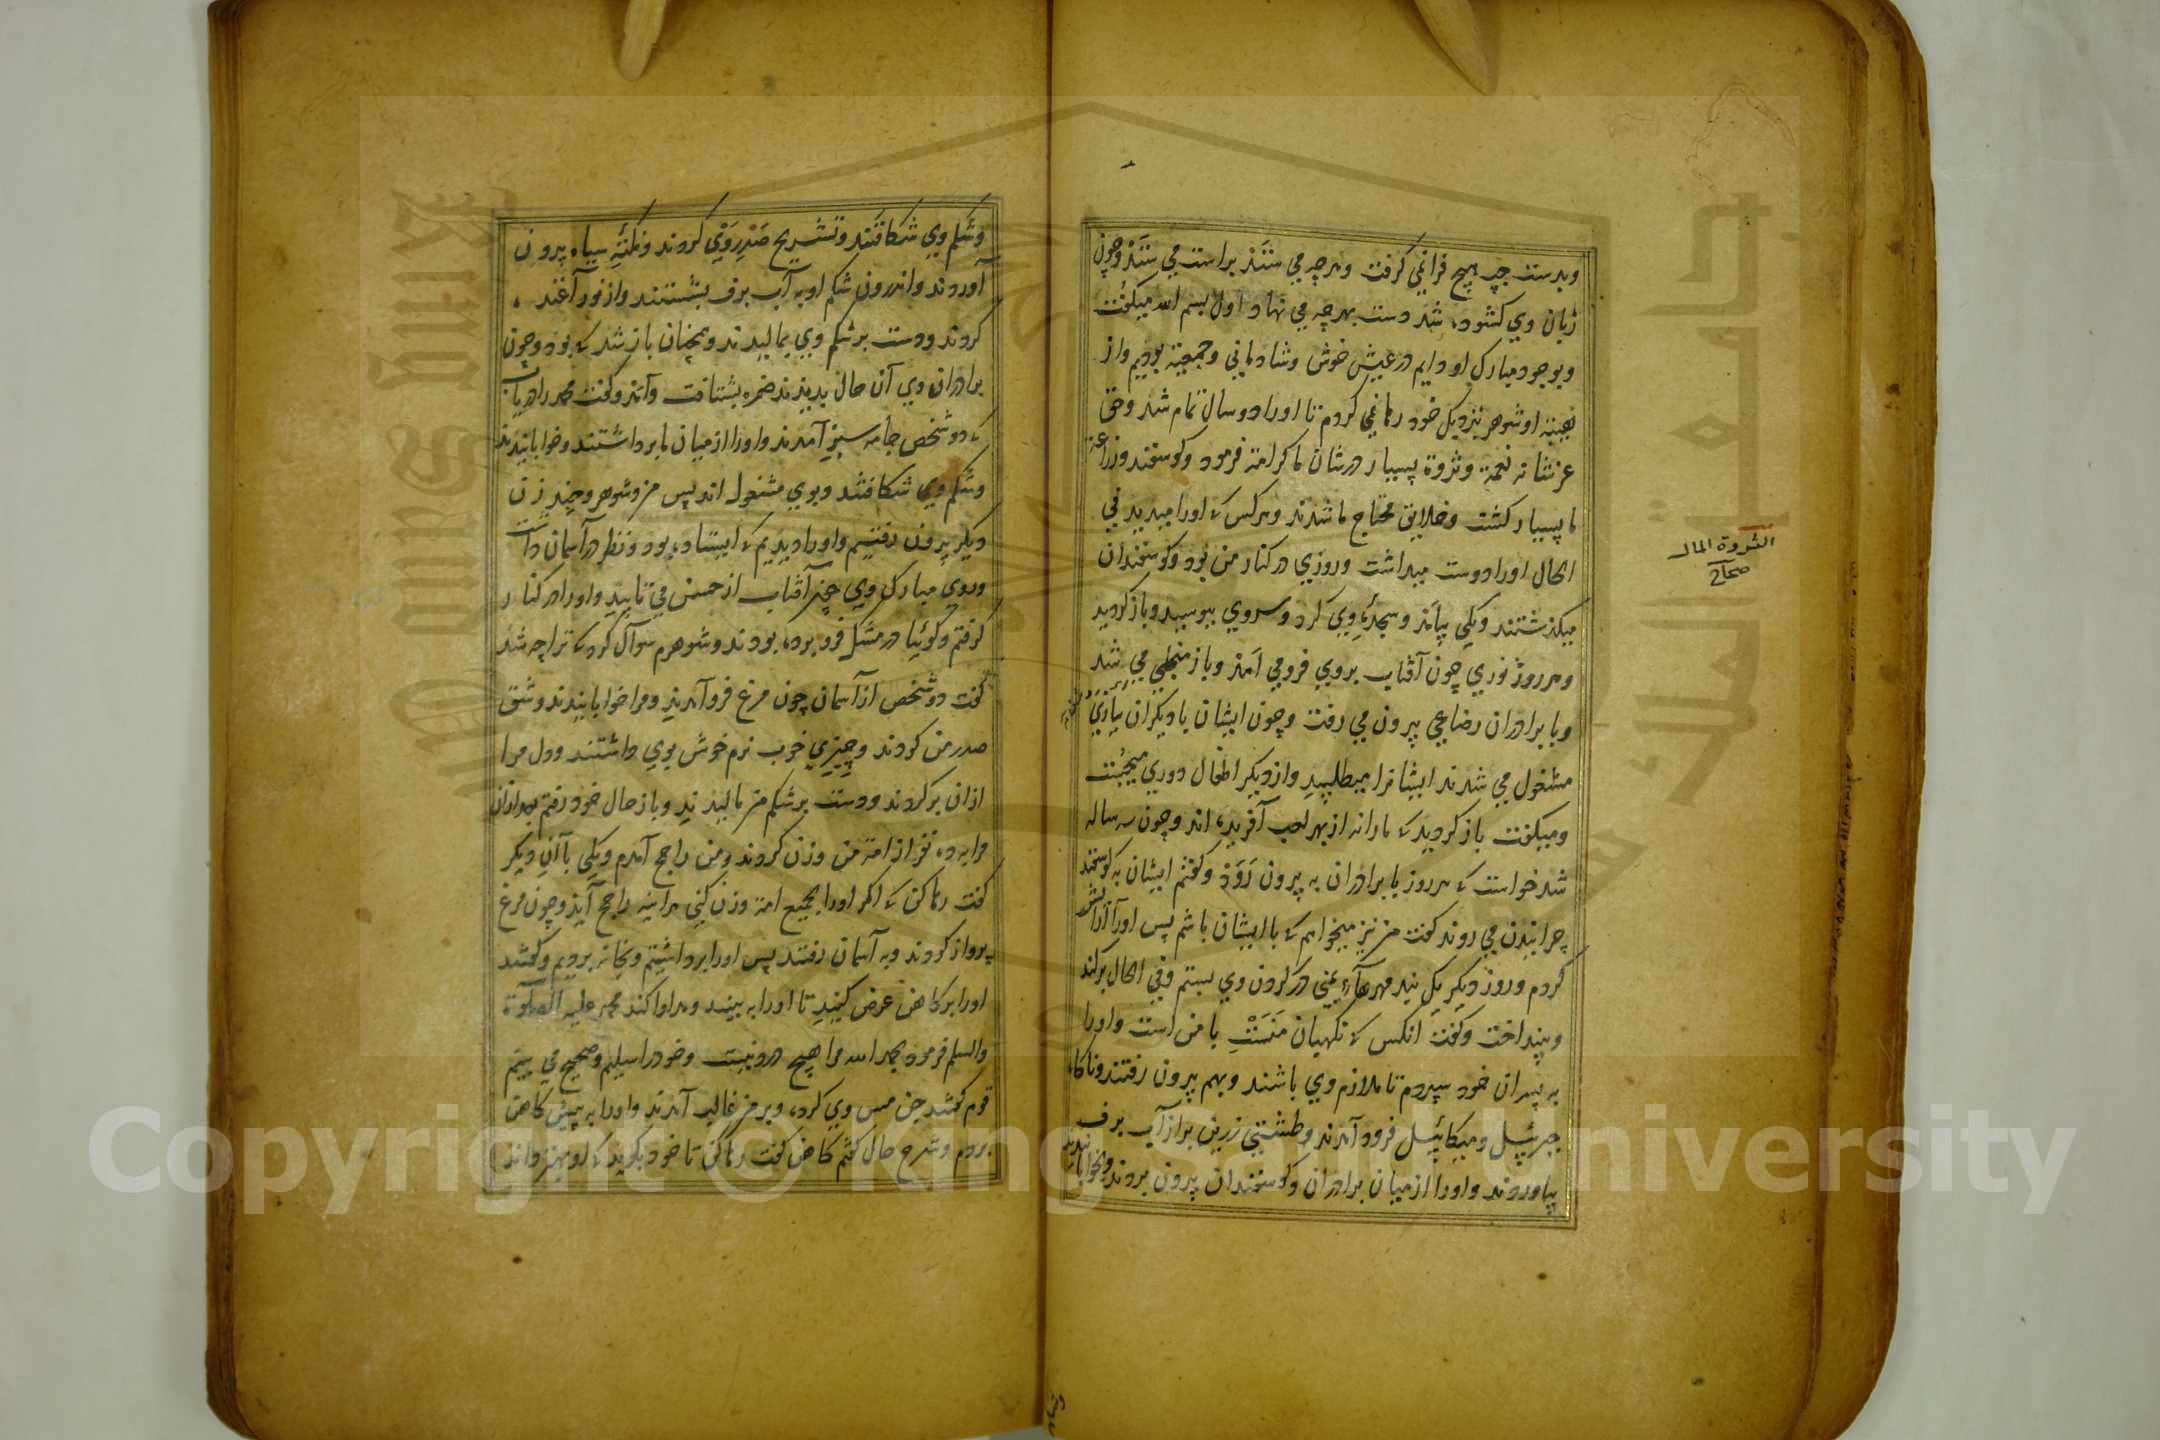 وبدست چپ هیچ فرا نمی گرفت وهرچه می ستَند براست می ستَند وچون
زبان وی کشوده شد دست بهرچه می نهاد اول بسم الله میکفت
وبوجود مبارک او دایم در عیش خوش وشادمانی وجمعیة بودیم واز
هیبة او شوهر بنزدیک خود رها نمی کردم تا اورا دو سال تمام شد وحق
عز شانه نعمة وثروة بسیار در شان ما کرامة فرمود وکوسفند وزراعة
ما بسیار کشت وخلایق محتاج ما شدند وهرکس که اورا میدید فی
الحال اورا دوست میداشت وروزی در کنار من بود وکوسفندان
میکذشتند ویکی بیامَد وسجدۀ وی کرد وسر وی ببوسید وباز کردید
وهر روز نوری چون آفتاب بروی فرو می آمَد وباز منجلی می شد
وبا برادران رضاعی بیرون می رفت وچون ایشان با دیکران ببازی
مشغول می شدند ایشانرا میطلبید واز دیکر اطفال دوری میجُست
ومیکفت باز کردید که مارا نه از بهر لعب آفریده اند وچون سه ساله
شد خواست که هر روز با برادران به بیرون رَوَد وکفتم ایشان به کوسفند
چرانیدن می روند کفت من نیز میخواهم که با ایشان باشم پس اورا آرایش
کردم وروز دیکر یک بند مهرهاء یمنی در کردن وی بستم وفی الحال برکند
وبینداخت وکفت انکس که نکهبان مَنَسْت با من است واورا
به پسران خود سپردم تا ملازم وی باشند وبهم بیرون رفتند وناکاه
جبرئیل ومیکائیل فرود آمدند وطشتی زرین پر از آب برف
بیاوردند واورا از میان برادران وکوسفندان بیرون بردند وبخوابانیدند
الثروة المال
صحاح
وشکم وی شکافتند وتشریح صَدرِ وَی کردند ونکتۀ سیاه بیرون
آوردند واندرون شکم او به آب برف بشستند واز نور آغند
کردند ودست بر شکم وی بمالیدند وهمچنان باز شد که بود وچون
برادران وی آن حال بدیدند ضمره بشتافت وآمَد وکفت محمد را دریاب
که دو شخص جامه سبز آمدند واورا از میان ما برداشتند وخوابانیدند
وشکم وی شکافتند وبوی مشغول اند پس من وشوهر وچند زن
دیکر بیرون رفتیم واورا دیدیم که ایستاده بود ونظر در آسمان داشت
وروی مبارک وی چون آفتاب از حسن می تابید واورا در کنار
کرفتم وکوئیا در مشک فرو برده بودند وشوهرم سوآل کرد که ترا چه شد
کفت دو شخص از آسمان چون مرغ فرو آمدند ومرا خوابانیدند وشق
صدر من کردند وچیزی خوب نرم خوش بوی داشتند ودل مرا
ازان پر کردند ودست بر شکم من مالیدند وباز حال خود رفتم بعد ازان
مرا به ده نفر از امة من وزن کردند ومن راجح آمدم ویکی با آن دیکر
کفت رها کن که اکر اورا بجمیع امة وزن کنی هراینه راجح آید وچون مرغ
پرواز کردند وبه آسمان رفتند پس اورا برداشتم وبخانه بردیم وکفتند
اورا بر کاهن عرض کنید تا اورا به بیند ومداوا کند محمد علیه الصلوة
والسلم فرمود بحمد الله مرا هیچ درد نیست وخود را سلیم وصحیح می بینم
قوم کفتند جن مس وی کرده وبر من غالب آمدند واورا به پیش کاهن
بردم وشرح حال کفتم کاهن کفت رها کن تا خود بکوید که او بهتر داند
Copyright © King Saud University